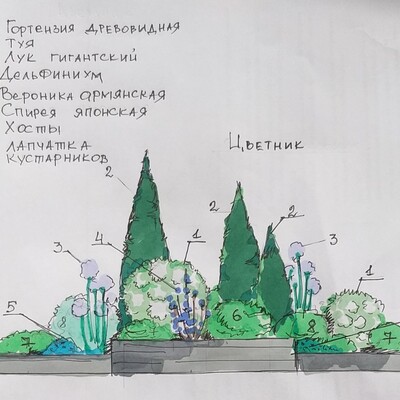 Гортензия древовидная
Туя
Лук гигантский
Дельфиниум
Вероника армянская
Спирея японская
Хосты
лапчатка
кустарников
Цветник
2
2
2
3
4
1
3
1
5
8
7
6
8
7